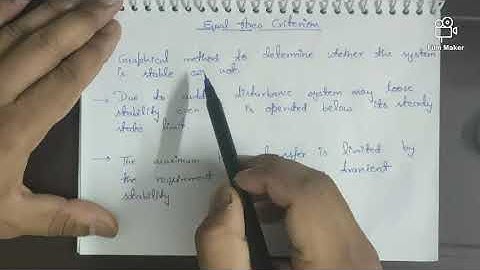 Equal Area Criterion
Film Maker
Graphical method to determine whether the system
is stable or not.
→ Due to disturbance system may loose
stability even is operated below its steady
state limit.
→ The maximum transfer is limited by
the requirement transient
stability